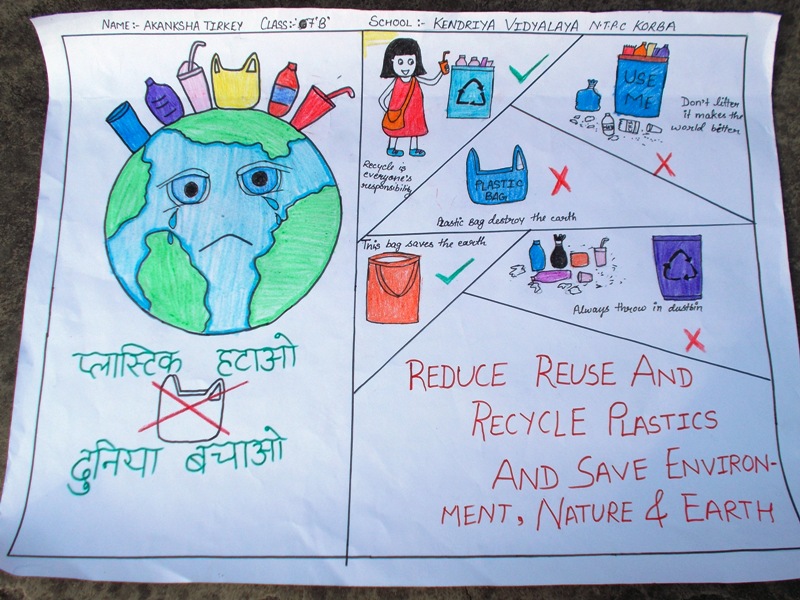 NAME:- AKANKSHA TIRKEY CLASS:- 7'B' SCHOOL:- KENDRIYA VIDYALAYA N.T.P.C KORBA
Recycle is
everyone's
responsibility
USE
ME
Don't litter
it makes the
world better
PLASTIC
BAG
Plastic Bag destroy the earth
This bag saves the earth
Always throw in dustbin
प्लास्टिक हटाओ
दुनिया बचाओ
REDUCE REUSE AND
RECYCLE PLASTICS
AND SAVE ENVIRON-
MENT, NATURE & EARTH